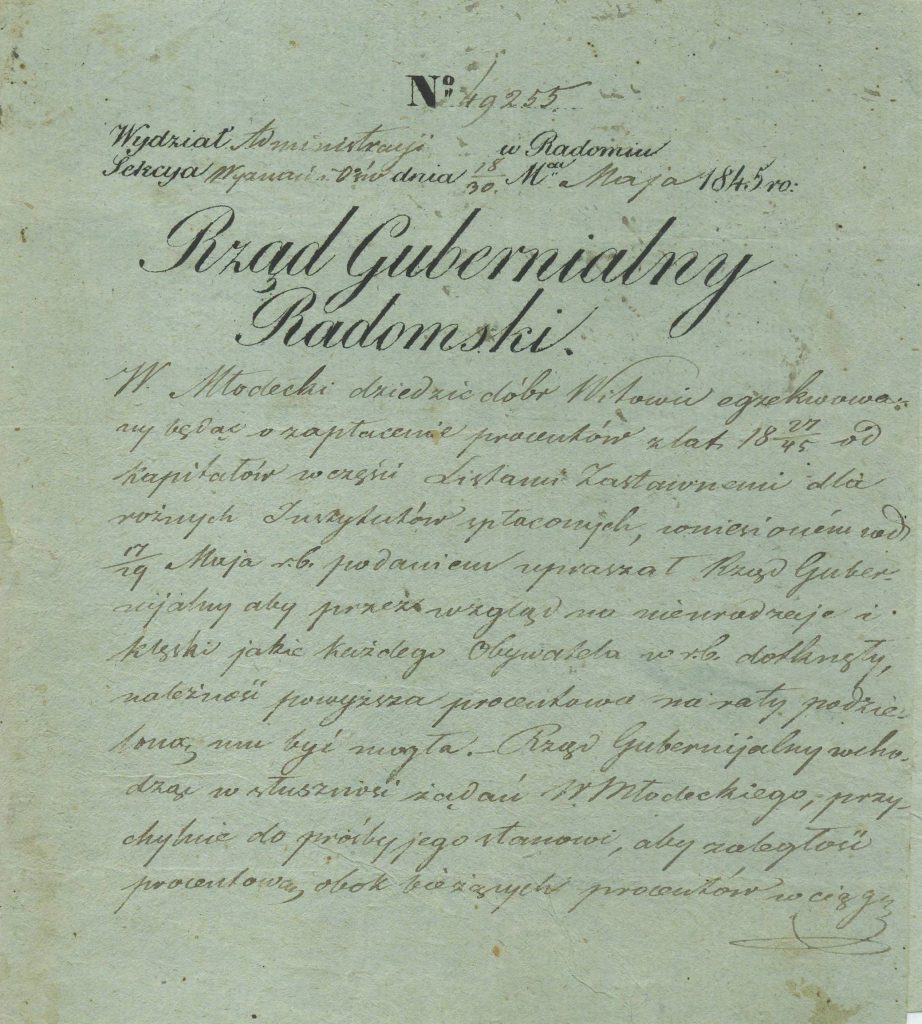 No 49255.
Wydział Administracyji w Radomiu
Sekcya Wyznań i Ośw dnia 18/30. Mca Maja 1845 ro:
Rząd Gubernialny
Radomski.
W. Młodecki dziedzic dóbr Witowic egzekwowa-
ny będąc o zapłacenie procentów z lat 18 27/45 od
kapitałów w części Listami Zastawnemi dla
rożnych Instytutów spłaconych, wniesioném pod
17/29 Maja r.b. podaniem upraszał Rząd Guber-
nijalny aby przez wzgląd na nieurodzaje i
klęski jakie każdego Obywatela w r.b. dotknęły,
należność powyższa procentowa na raty podzie-
loną mu być mogła. – Rząd Gubernijalny wcho-
dząc w słuszność żądań W. Młodeckiego, przy-
chylnie do prośby jego stanowi, aby zaległość
procentową, obok bieżących procentów w ciągu